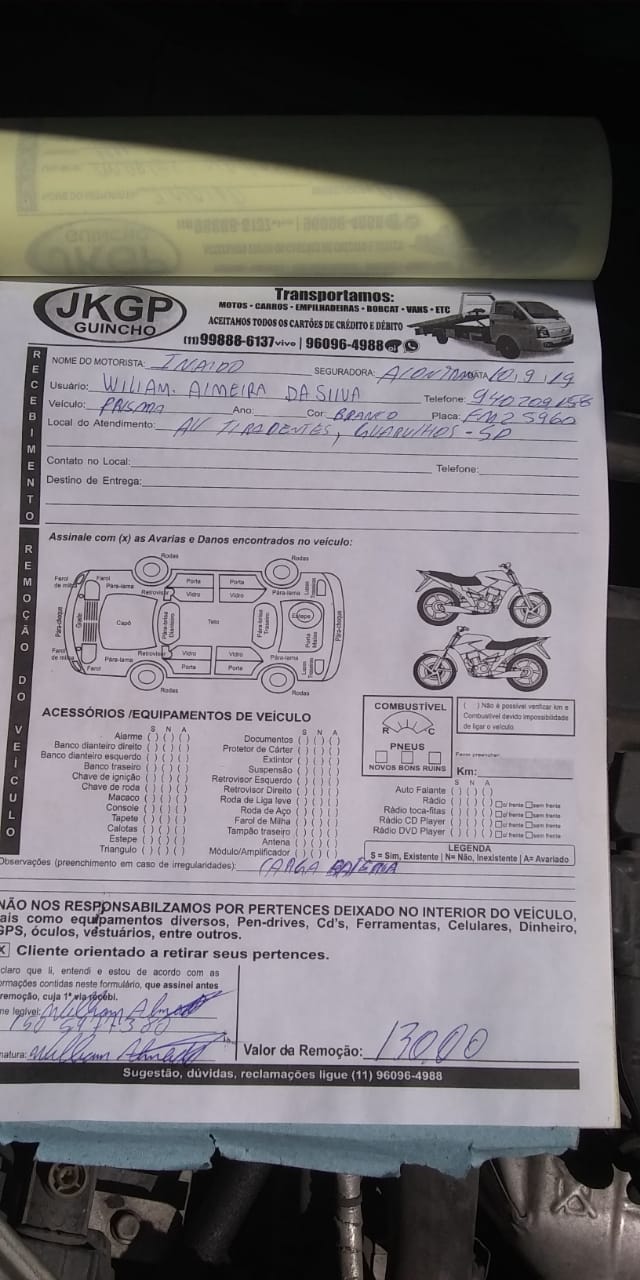 JKGP
GUINCHO
Transportamos:
MOTOS - CARROS - EMPILHADEIRAS - BOBCAT - VANS - ETC
ACEITAMOS TODOS OS CARTÕES DE CRÉDITO E DÉBITO
(11) 99888-6137 vivo | 96096-4988
RECEBIMENTO
NOME DO MOTORISTA: INALDO SEGURADORA: DATA 10, 9, 19
Usuário: WILIAM. ALMEIRA DA SILVA Telefone: 940209158
Veículo: PRISMA Ano: Cor: BRANCO Placa: FMZ 5960
Local do Atendimento: AV TIRADENTES, GUARULHOS - SP
Contato no Local: Telefone:
Destino de Entrega:
REMOÇÃO DO VEÍCULO
Assinale com (x) as Avarias e Danos encontrados no veículo:
Rodas Rodas
Farol de milha Farol Pára-lama Retrovisor Porta Porta Pára-lama Lanter. Traseira
Vidro Vidro
Pára-choque Grade Capô Pára-brisa Dianteiro Teto Pára-brisa Traseiro Estepe Porta Malas Pára-choque
Farol de milha Farol Pára-lama Retrovisor Vidro Vidro Pára-lama Lanter. Traseira
Porta Porta
Rodas Rodas
ACESSÓRIOS /EQUIPAMENTOS DE VEÍCULO
S N A
Alarme ( ) ( ) ( )
Banco dianteiro direito ( ) ( ) ( )
Banco dianteiro esquerdo ( ) ( ) ( )
Banco traseiro ( ) ( ) ( )
Chave de ignição ( ) ( ) ( )
Chave de roda ( ) ( ) ( )
Macaco ( ) ( ) ( )
Console ( ) ( ) ( )
Tapete ( ) ( ) ( )
Calotas ( ) ( ) ( )
Estepe ( ) ( ) ( )
Triangulo ( ) ( ) ( )
S N A
Documentos ( ) ( ) ( )
Protetor de Cárter ( ) ( ) ( )
Extintor ( ) ( ) ( )
Suspensão ( ) ( ) ( )
Retrovisor Esquerdo ( ) ( ) ( )
Retrovisor Direito ( ) ( ) ( )
Roda de Liga leve ( ) ( ) ( )
Roda de Aço ( ) ( ) ( )
Farol de Milha ( ) ( ) ( )
Tampão traseiro ( ) ( ) ( )
Antena ( ) ( ) ( )
Módulo/Amplificador ( ) ( ) ( )
COMBUSTÍVEL
R C
PNEUS
NOVOS BONS RUINS
( ) Não é possível verificar km e
Combustível devido impossibilidade
de ligar o veículo.
Favor preencher:
Km:
S N A
Auto Falante ( ) ( ) ( )
Rádio ( ) ( ) ( ) c/ frente sem frente
Rádio toca-fitas ( ) ( ) ( ) c/ frente sem frente
Rádio CD Player ( ) ( ) ( ) c/ frente sem frente
Rádio DVD Player ( ) ( ) ( ) c/ frente sem frente
LEGENDA
S = Sim, Existente | N= Não, Inexistente | A= Avariado
Observações (preenchimento em caso de irregularidades): CARGA BATERIA
NÃO NOS RESPONSABILZAMOS POR PERTENCES DEIXADO NO INTERIOR DO VEÍCULO,
ais como equipamentos diversos, Pen-drives, Cd's, Ferramentas, Celulares, Dinheiro,
GPS, óculos, vestuários, entre outros.
X Cliente orientado a retirar seus pertences.
claro que li, entendi e estou de acordo com as
ormações contidas neste formulário, que assinei antes
remoção, cuja 1ª via recebi.
ne legível: William Almeida
natura: William Almeida
Valor da Remoção: 130,00
Sugestão, dúvidas, reclamações ligue (11) 96096-4988